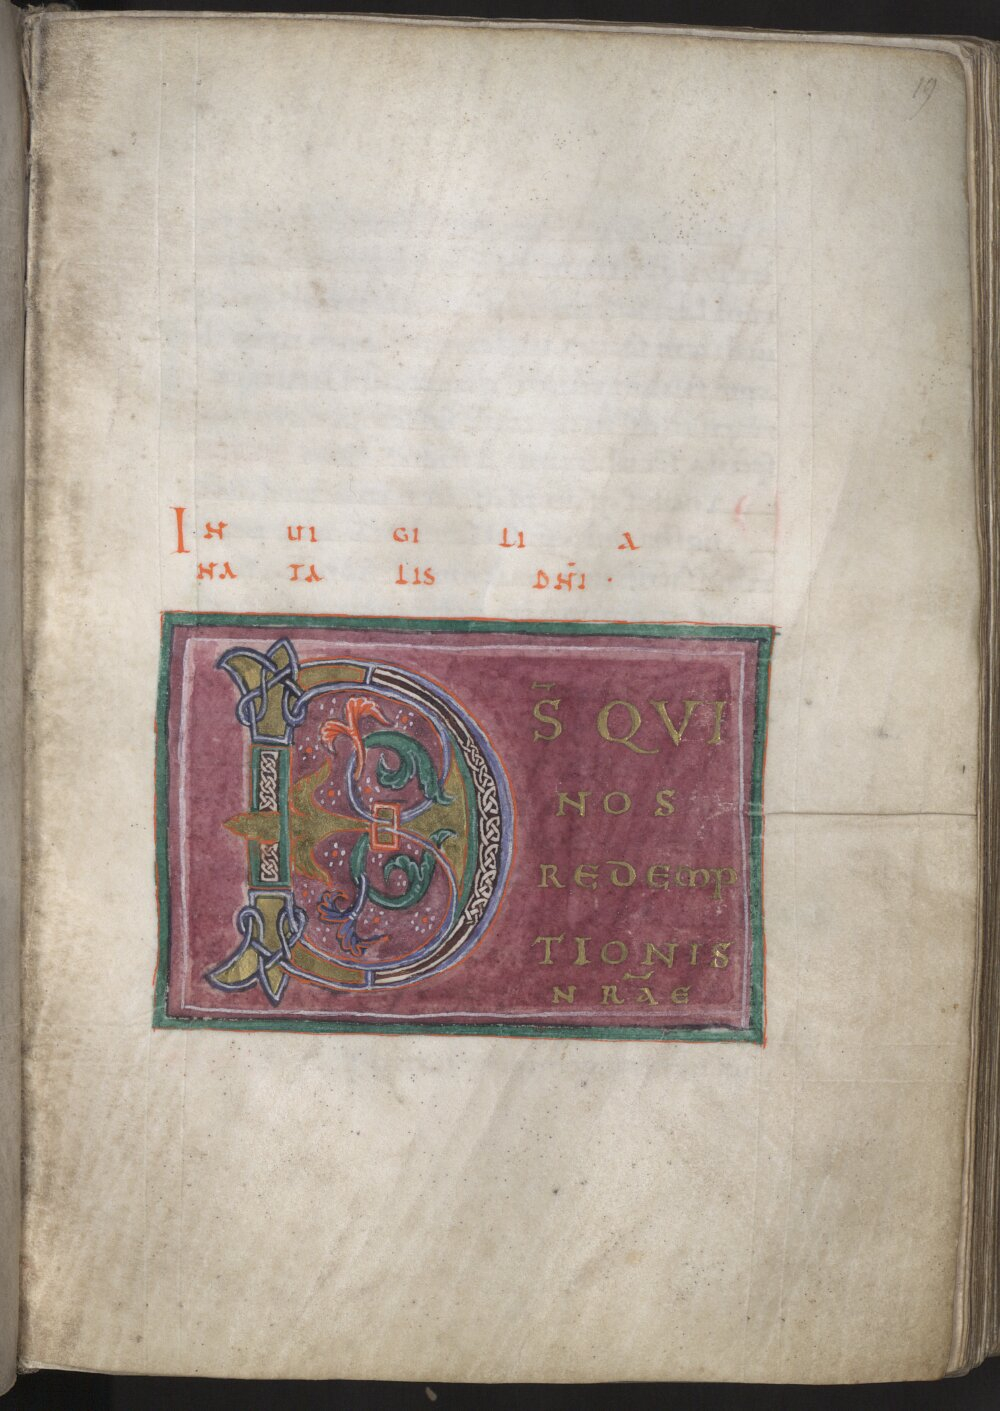 19
IN UI GI LI A
NA TA LIS DN̄I ·
DS̄ QVI
NOS
REDEMP
TIONIS
NR̄AE